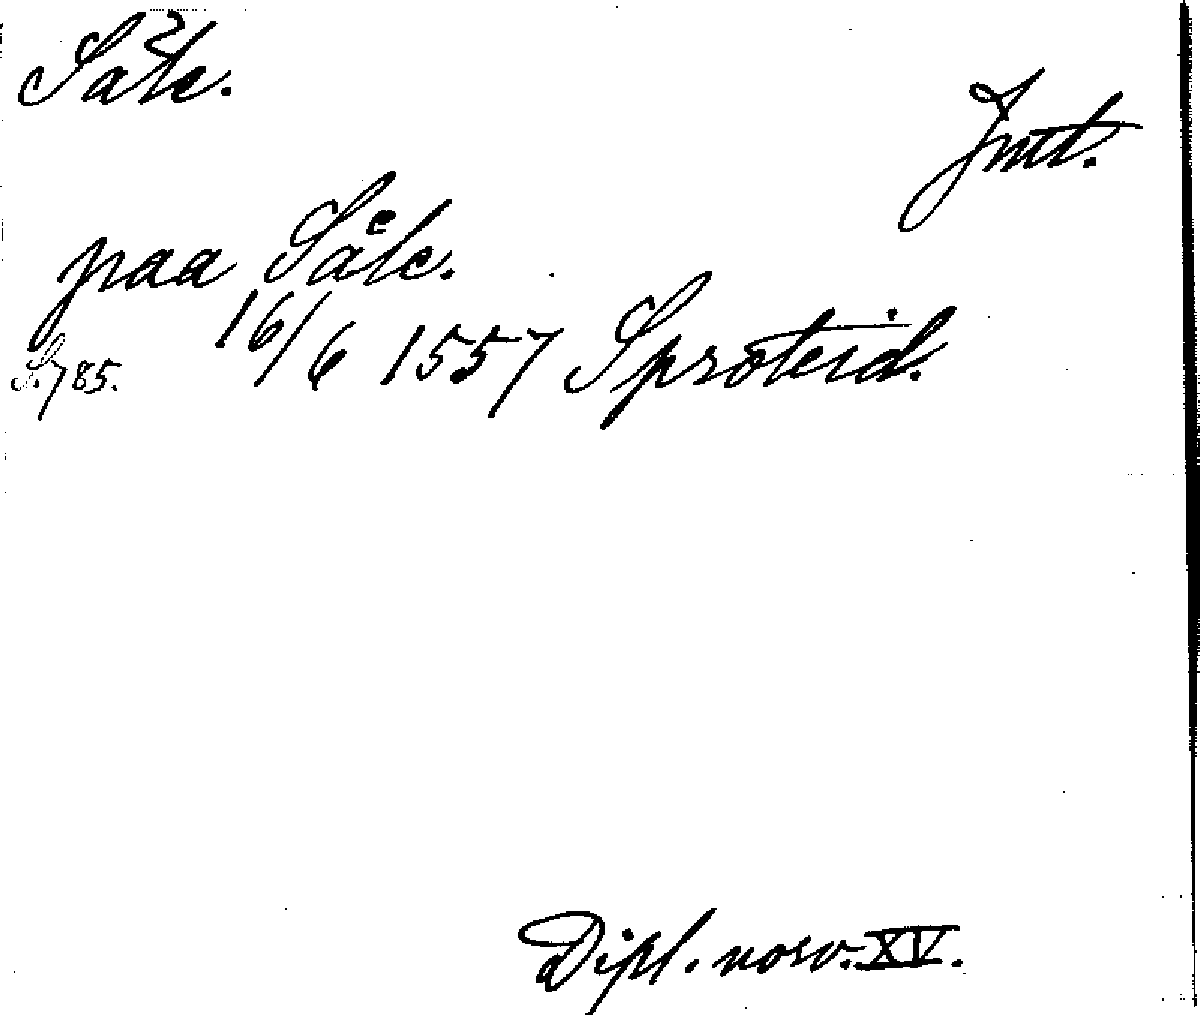 Såle.
Jmt.
paa Såle.
16/6 1557 Sproteid.
S. 785.
Dipl. norv. XV.